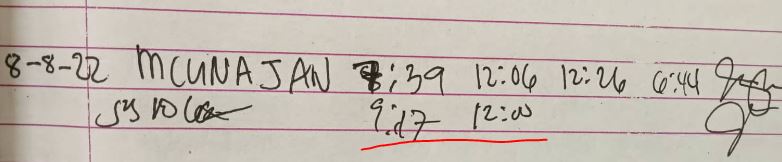 8-8-22 MCUNAJAN 8:39 12:06 12:26 6:44
9:17 12:00